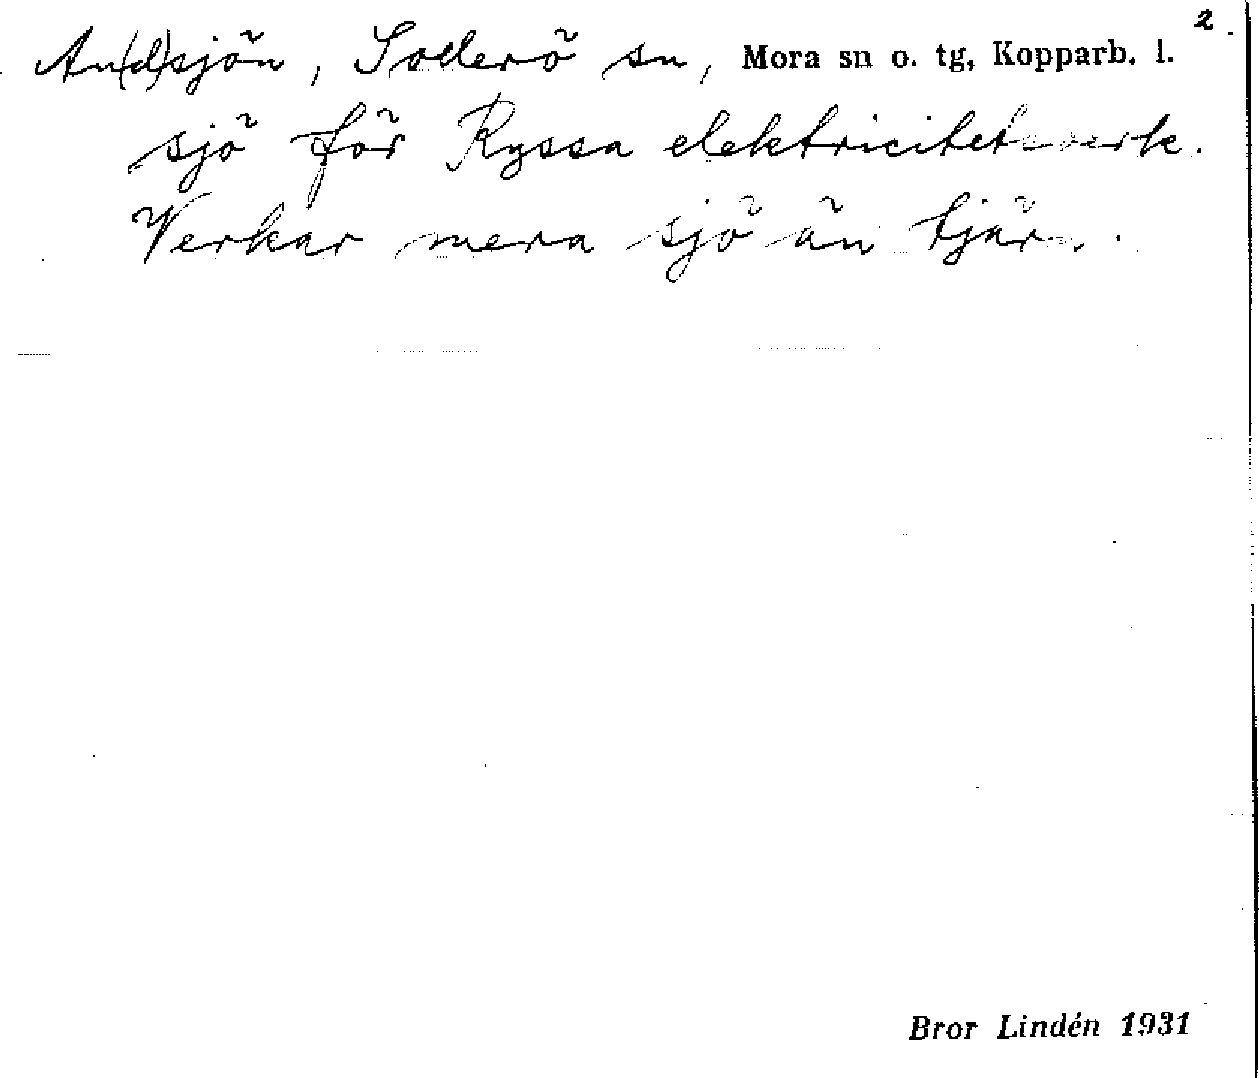 2.
An(d)sjön, Sollerö sn, Mora sn o. tg, Kopparb. l.
sjö för Ryssa elektricitetsverk.
Verkar mera sjö än tjärn.
Bror Lindén 1931